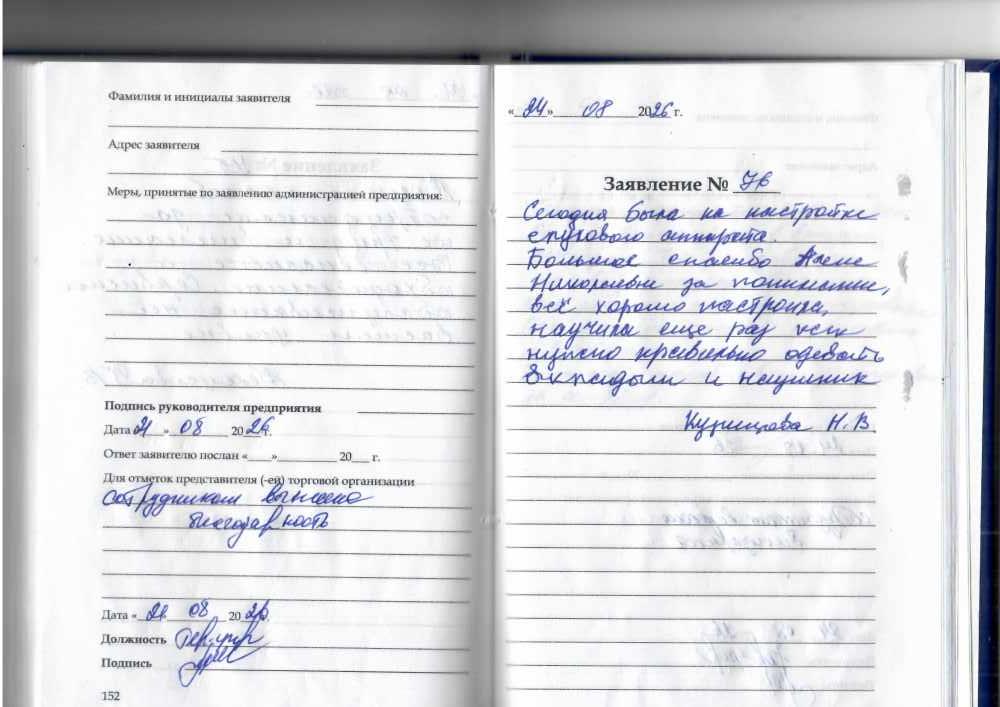 Фамилия и инициалы заявителя
Адрес заявителя
Меры, принятые по заявлению администрацией предприятия:
Подпись руководителя предприятия
Дата «21» 08 2026г.
Ответ заявителю послан «___»_________ 20___ г.
Для отметок представителя (-ей) торговой организации
сотрудникам вынесена
благодарность
Дата «21» 08 2026г.
Должность
Подпись
152
«24» 08 2026 г.
Заявление № 76
Сегодня была на настройке
слухового аппарата.
Большое спасибо Алене
Николаевне за понимание,
всё хорошо настроила,
научила еще раз как
нужно правильно одевать
вкладыш и наушник
Н. В.